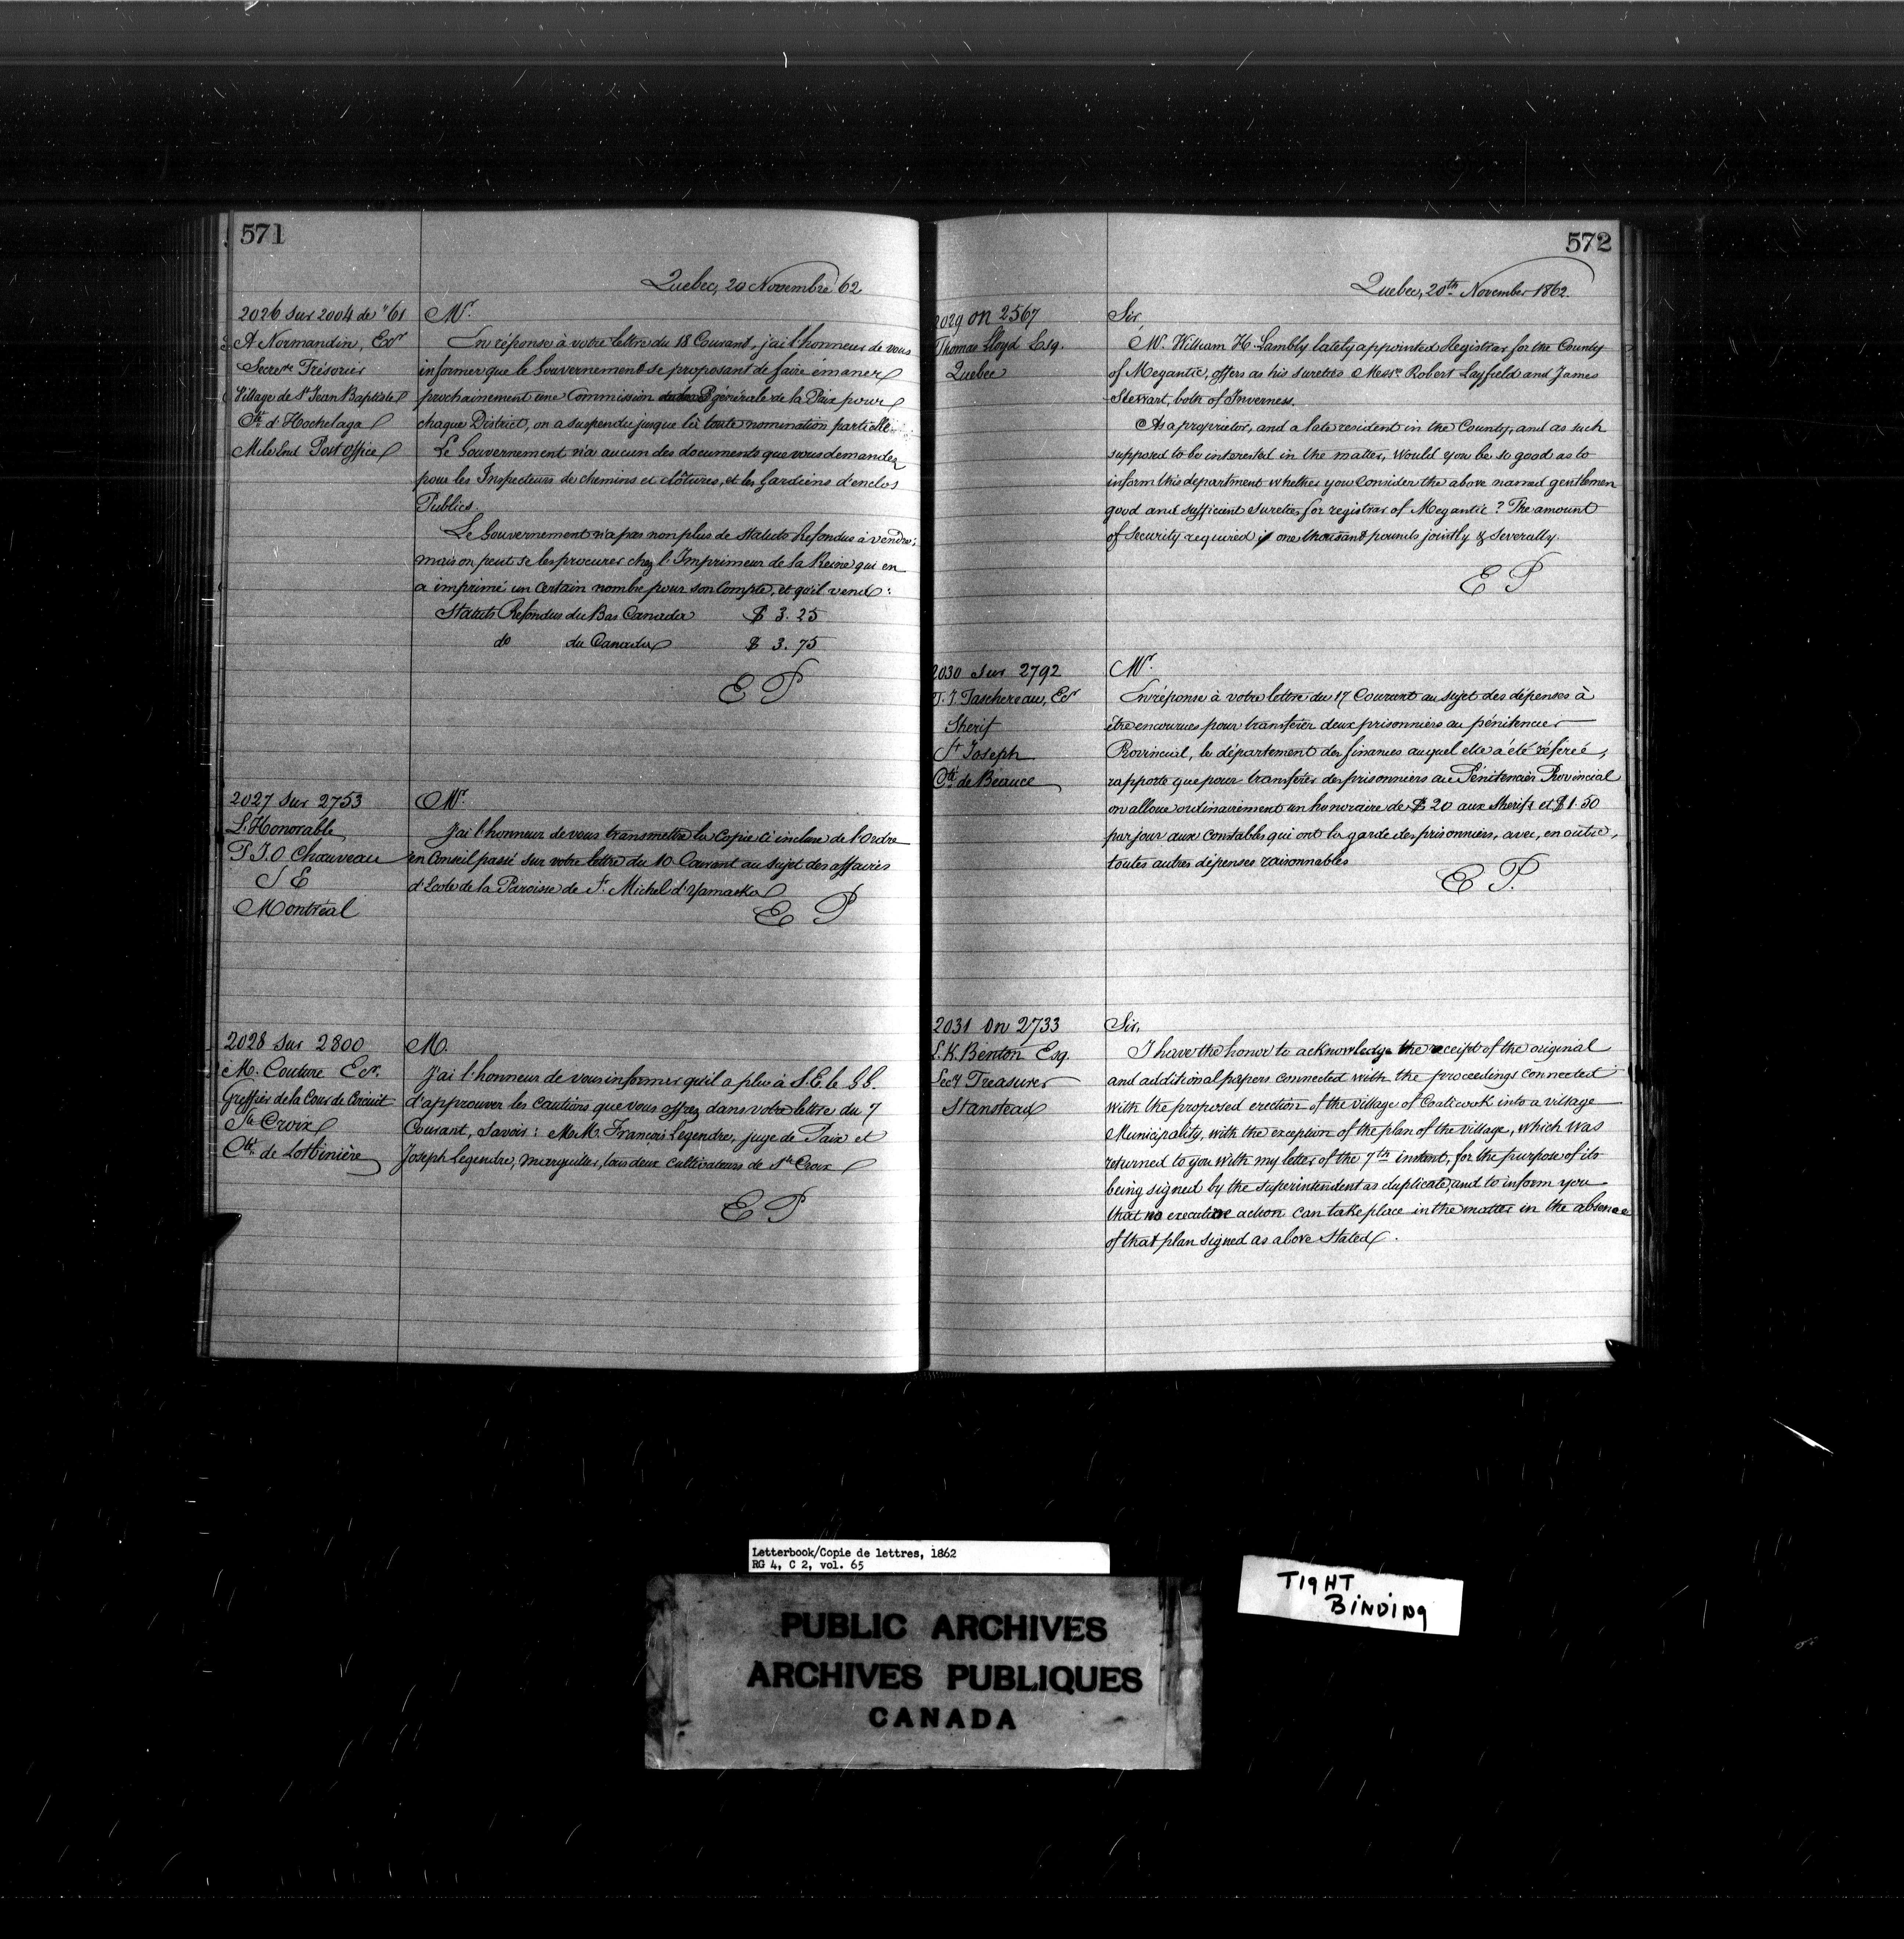 571
Quebec, 20 Novembre 62
2026 sur 2004 de "61
A Normandin, Ecr
Secrere Trésorier
Village de St Jean Baptiste
Cté d'Hochelaga
Mile End Post Office
Mr.
En réponse à votre lettre du 18 Courant, j'ai l'honneur de vous
informer que le Gouvernement se proposant de faire émaner
prochainement une Commission générale de la Paix pour
chaque District, on a suspendu jusque là toute nomination partielle.
Le Gouvernement n'a aucun des documents que vous demandez
pour les Inspecteurs de chemins et clôtures, et les Gardiens d'enclos
Publics.
Le Gouvernement n'a pas non plus de Statuts Refondus à vendre;
mais on peut se les procurer chez l'Imprimeur de la Reine qui en
a imprimé un certain nombre pour son Compte, et qu'il vend:
Statuts Refondus du Bas Canada $ 3.25
do du Canada $ 3.75
E P
2027 sur 2753
L'Honorable
P. J. O Chauveau
S E
Montréal
Mr.
J'ai l'honneur de vous transmettre la Copie ci incluse de l'Ordre
en Conseil passé sur votre lettre du 10 Courant au sujet des affaires
d'Ecole de la Paroisse de St. Michel d'Yamaska
E P
2028 sur 2800
M. Couture Ecr.
Greffier de la Cour de Circuit
Ste Croix
Cté. de Lotbinière
M.
J'ai l'honneur de vous informer qu'il a plu à S. E. le G. G.
d'approuver les cautions que vous offrez dans votre lettre du 7
Courant, savoir: M.M. François Legendre, juge de Paix et
Joseph Legendre, marguiller, tous deux cultivateurs de Ste Croix
E P
572
Quebec, 20th November 1862.
2029 on 2567
Thomas Lloyd Esq.
Quebec
Sir
Mr. William H. Lambly lately appointed Registrar for the County
of Megantic, offers as his sureties Messrs Robert Layfield and James
Stewart, both of Inverness.
As a proprietor, and a late resident in the County, and as such
supposed to be interested in the matter, would you be so good as to
inform this department whether you consider the above named gentlemen
good and sufficient sureties for registrar of Megantic? The amount
of Security required is one thousand pounds jointly & severally.
E P
2030 sur 2792
T. J. Taschereau, Ecr
Sherif
St Joseph
Cté de Beauce
Mr.
En réponse à votre lettre du 17 Courant au sujet des dépenses à
être encourues pour transférer deux prisonniers au pénitencier
Provincial, le département des finances auquel elle a été référée,
rapporte que pour transférer des prisonniers au Pénitencier Provincial
on alloue ordinairement un honoraire de $ 20 aux Sherifs et $1.50
par jour aux Constables qui ont la garde des prisonniers, avec, en outre,
toutes autres dépenses raisonnables
E P.
2031 on 2733
L. K. Benton Esq.
Secy Treasurer
Stanstead
Sir,
I have the honor to acknowledge the receipt of the original
and additional papers connected with the proceedings connected
with the proposed erection of the village of Coaticook into a village
Municipality, with the exception of the plan of the village, which was
returned to you with my letter of the 7th instant, for the purpose of its
being signed by the superintendent as duplicate, and to inform you
that no executive action can take place in the matter in the absence
of that plan signed as above stated.
Letterbook/Copie de lettres, 1862
RG 4, C 2, vol. 65
TIGHT
BINDING
PUBLIC ARCHIVES
ARCHIVES PUBLIQUES
CANADA